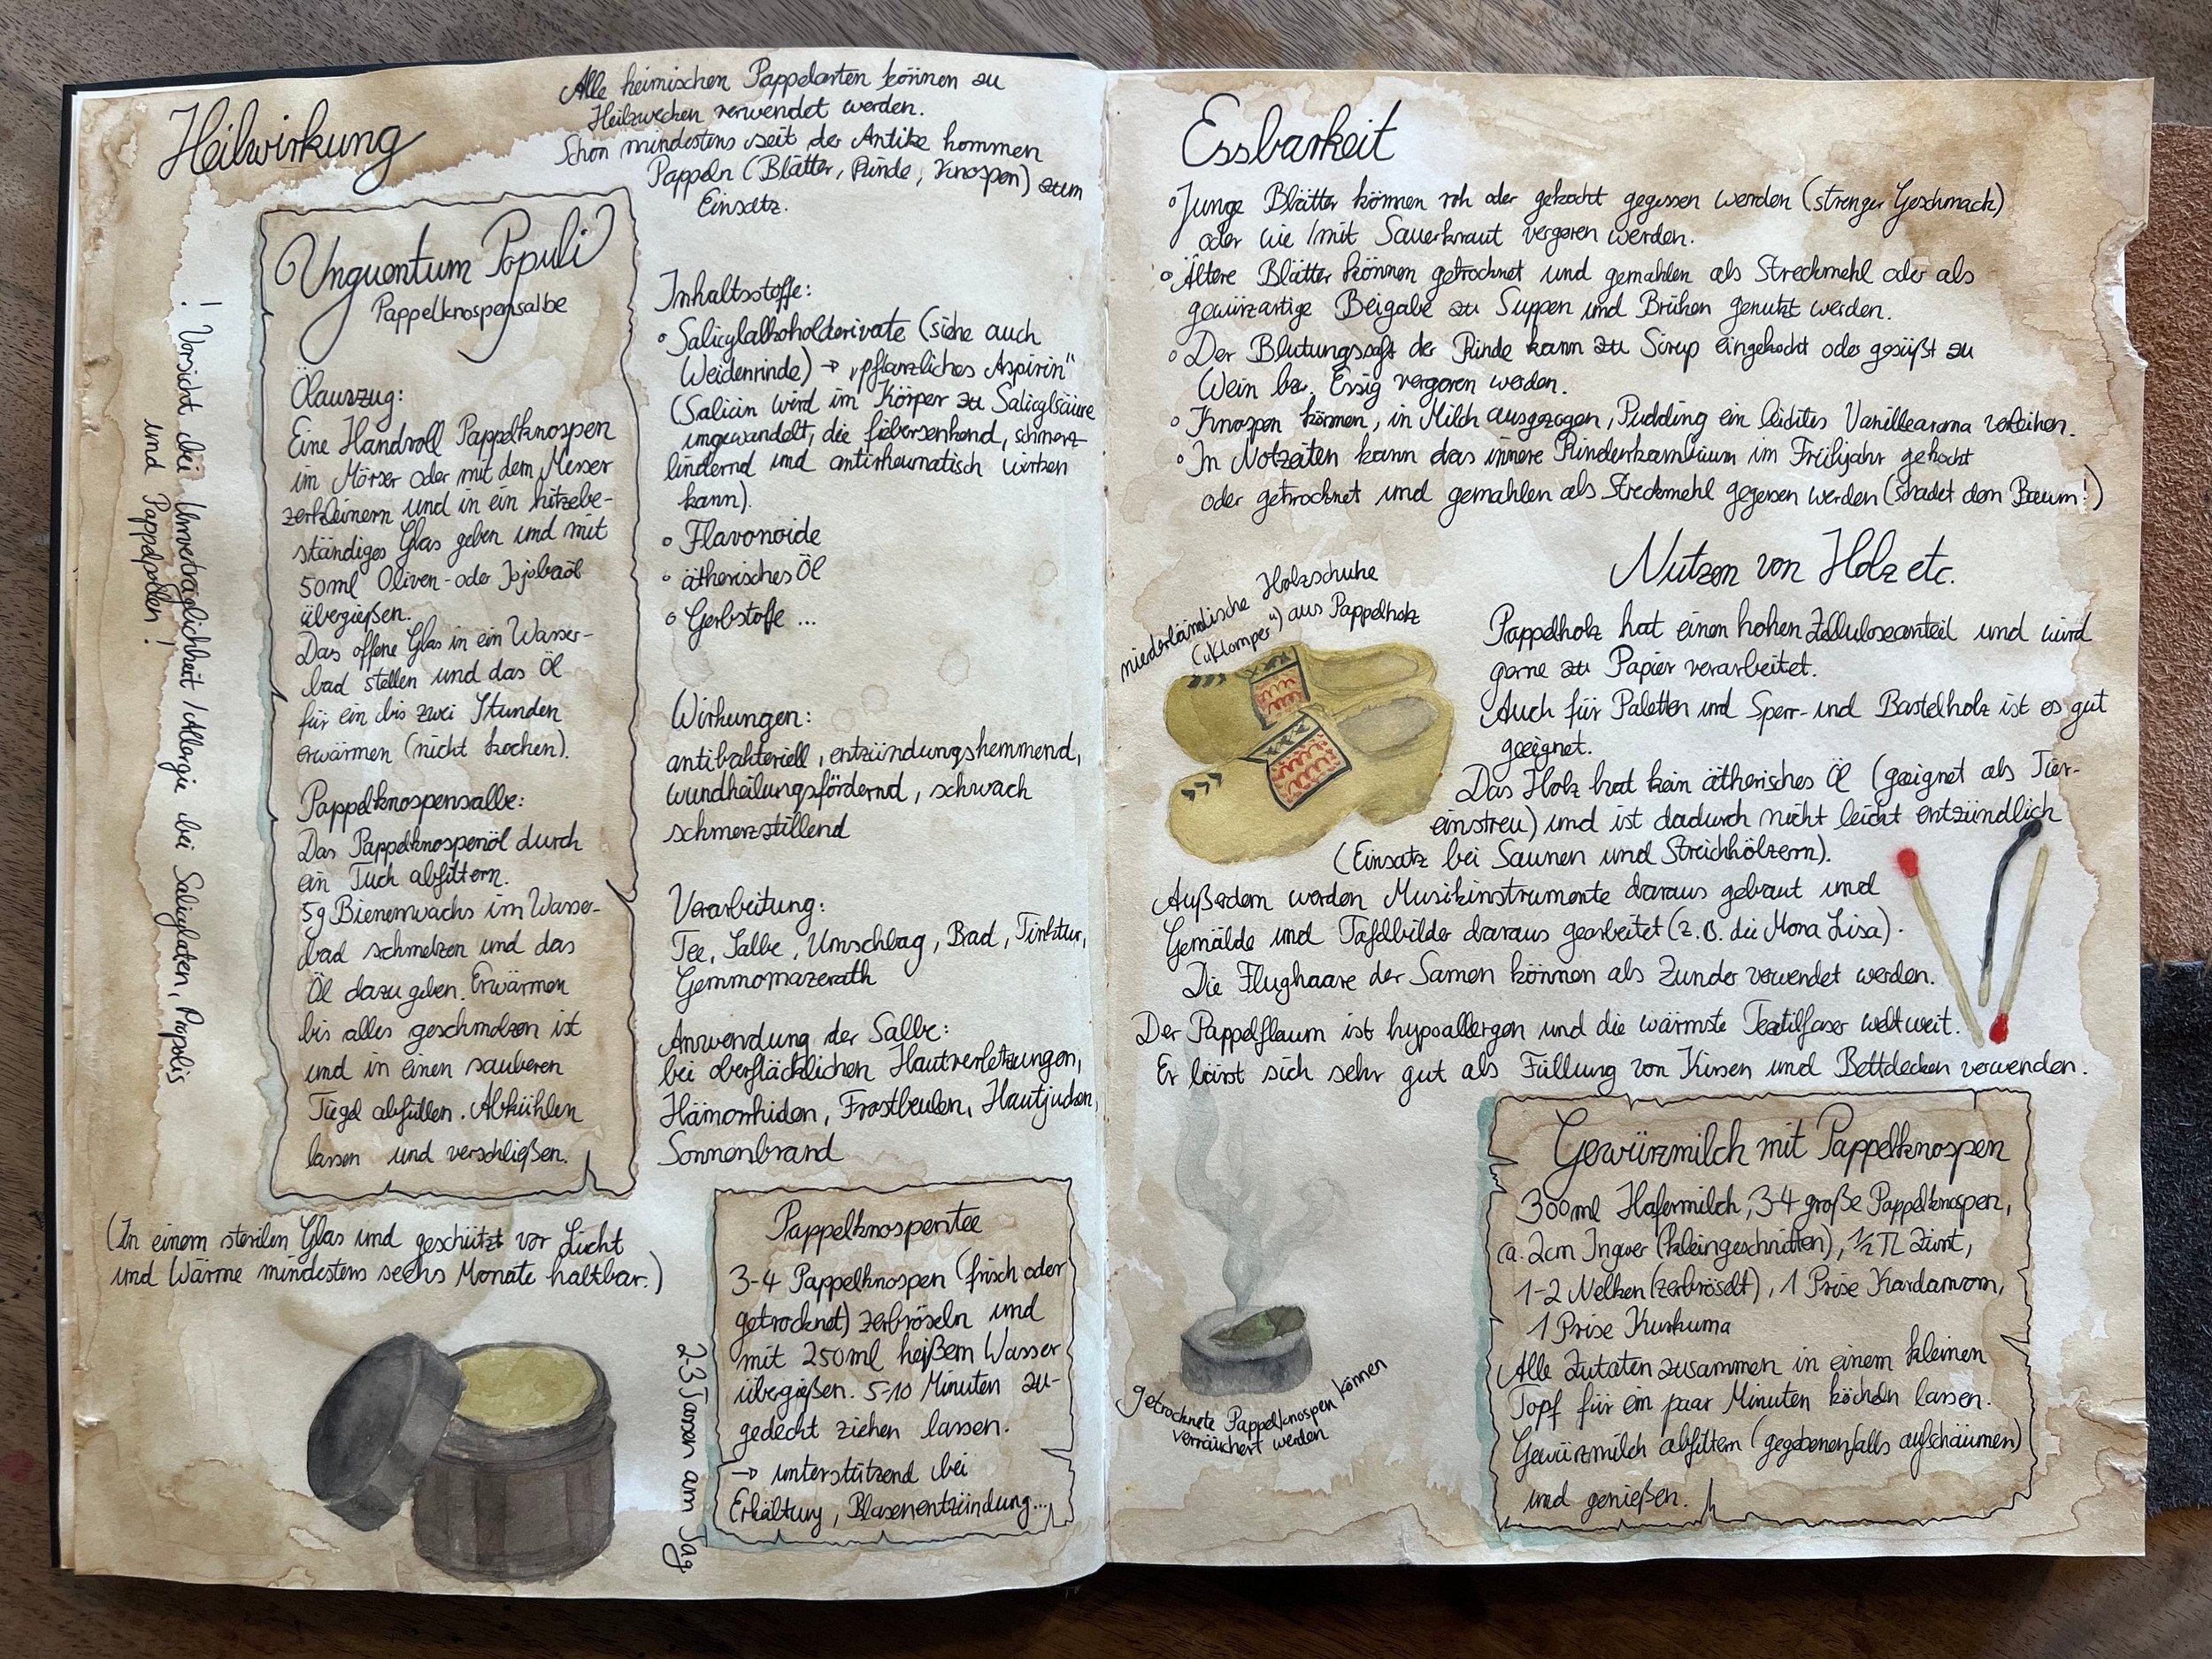 Heilwirkung
Alle heimischen Pappelarten können zu
Heilzwecken verwendet werden.
Schon mindestens seit der Antike kommen
Pappeln (Blätter, Rinde, Knospen) zum
Einsatz.
! Vorsicht bei Unverträglichkeit / Allergie bei Salicylaten, Propolis
und Pappelpollen !
Unguentum Populi
Pappelknospensalbe
Ölauszug:
Eine Handvoll Pappelknospen
im Mörser oder mit dem Messer
zerkleinern und in ein hitzebe-
ständiges Glas geben und mit
50ml Oliven- oder Jojobaöl
übergießen.
Das offene Glas in ein Wasser-
bad stellen und das Öl
für ein bis zwei Stunden
erwärmen (nicht kochen).
Pappelknospensalbe:
Das Pappelknospenöl durch
ein Tuch abfiltern.
5g Bienenwachs im Wasser-
bad schmelzen und das
Öl dazu geben. Erwärmen
bis alles geschmolzen ist
und in einen sauberen
Tiegel abfüllen. Abkühlen
lassen und verschließen.
(In einem sterilen Glas und geschützt vor Licht
und Wärme mindestens sechs Monate haltbar.)
Inhaltsstoffe:
◦ Salicylalkoholderivate (siehe auch
Weidenrinde) → "pflanzliches Aspirin"
(Salicin wird im Körper zu Salicylsäure
umgewandelt, die fiebersenkend, schmerz-
lindernd und antirheumatisch wirken
kann).
◦ Flavonoide
◦ ätherisches Öl
◦ Gerbstoffe ...
Wirkungen:
antibakteriell, entzündungshemmend,
wundheilungsfördernd, schwach
schmerzstillend
Verarbeitung:
Tee, Salbe, Umschlag, Bad, Tinktur,
Gemmomazerath
Anwendung der Salbe:
bei oberflächlichen Hautverletzungen,
Hämorrhiden, Frostbeulen, Hautjucken,
Sonnenbrand
Pappelknospentee
3-4 Pappelknospen (frisch oder
getrocknet) zerbröseln und
mit 250ml heißem Wasser
übergießen. 5-10 Minuten zu-
gedeckt ziehen lassen.
→ unterstützend bei
Erkältung, Blasenentzündung...
2-3 Tassen am Tag
Essbarkeit
◦ Junge Blätter können roh oder gekocht gegessen werden (strenger Geschmack)
oder wie / mit Sauerkraut vergoren werden.
◦ Ältere Blätter können getrocknet und gemahlen als Streckmehl oder als
gewürzartige Beigabe zu Suppen und Brühen genutzt werden.
◦ Der Blutungssaft der Rinde kann zu Sirup eingekocht oder gesüßt zu
Wein bzw. Essig vergoren werden.
◦ Knospen können, in Milch ausgezogen, Pudding ein leichtes Vanillearoma verleihen.
◦ In Notzeiten kann das innere Rindenkambium im Frühjahr gekocht
oder getrocknet und gemahlen als Streckmehl gegessen werden (schadet dem Baum!)
Nutzen von Holz etc.
niederländische Holzschuhe
("Klomper") aus Pappelholz
Pappelholz hat einen hohen Zelluloseanteil und wird
gerne zu Papier verarbeitet.
Auch für Paletten und Sperr- und Bastelholz ist es gut
geeignet.
Das Holz hat kein ätherisches Öl (geeignet als Tier-
einstreu) und ist dadurch nicht leicht entzündlich
(Einsatz bei Saunen und Streichhölzern).
Außerdem werden Musikinstrumente daraus gebaut und
Gemälde und Tafelbilder daraus gearbeitet (z.B. die Mona Lisa).
Die Flughaare der Samen können als Zunder verwendet werden.
Der Pappelflaum ist hypoallergen und die wärmste Textilfaser weltweit.
Er lässt sich sehr gut als Füllung von Kissen und Bettdecken verwenden.
getrocknete Pappelknospen können
verräuchert werden
Gewürzmilch mit Pappelknospen
300ml Hafermilch, 3-4 große Pappelknospen,
ca. 2cm Ingwer (kleingeschnitten), 1/2 TL Zimt,
1-2 Nelken (zerbröselt), 1 Prise Kardamom,
1 Prise Kurkuma
Alle Zutaten zusammen in einem kleinen
Topf für ein paar Minuten köcheln lassen.
Gewürzmilch abfiltern (gegebenenfalls aufschäumen)
und genießen.